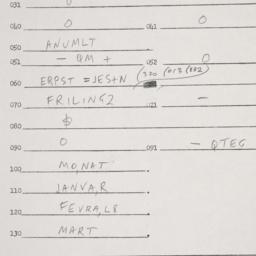 031 0
040 0 041 0
050 ANUMLT
051 - QM + 052 0
060 ERPST = JESTN (320 /013/882)
070 FRILING2 021 -
080 $
090 0 091 - QTEG
100 MO,NAT.
110 JANVA,R.
120 FEVRA,L8.
130 MART.